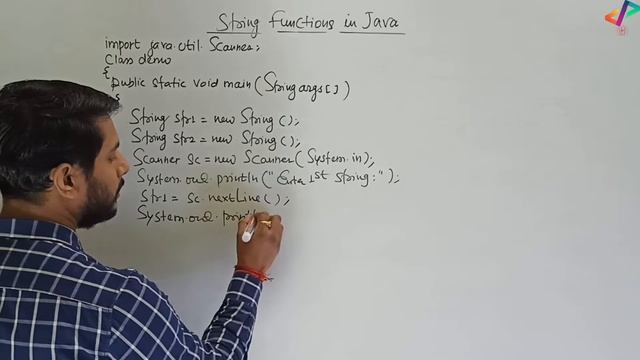 String functions in Java
import java.util.Scanner;
Class demo
{
public static void main(String args[])
{
String str1 = new String();
String str2 = new String();
Scanner sc = new Scanner(System.in);
System.out.println("Enter 1st String:");
str1 = sc.nextLine();
System.out.println